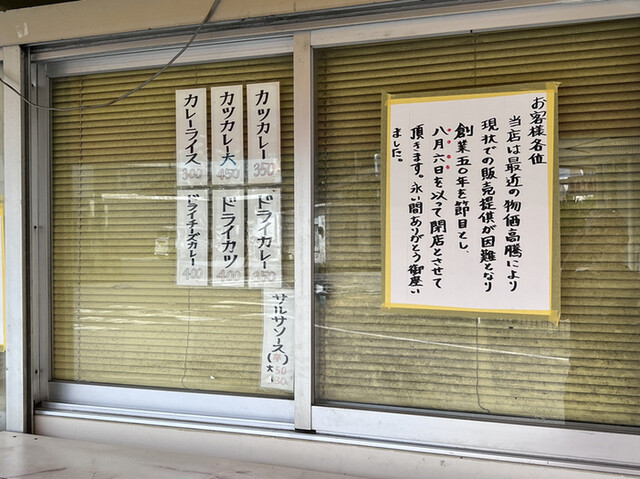 お客様各位
当店は最近の物価高騰により
現状での販売提供が困難となり
創業五〇年を節目とし、
八月六日を以って閉店とさせて
頂きます。永い間ありがとう御座い
ました。
カツカレー
350
カツカレー大
450
カレーライス
300
ドライカレー
350
ドライカツ
400
ドライチーズカレー
400
サルサソース(辛)